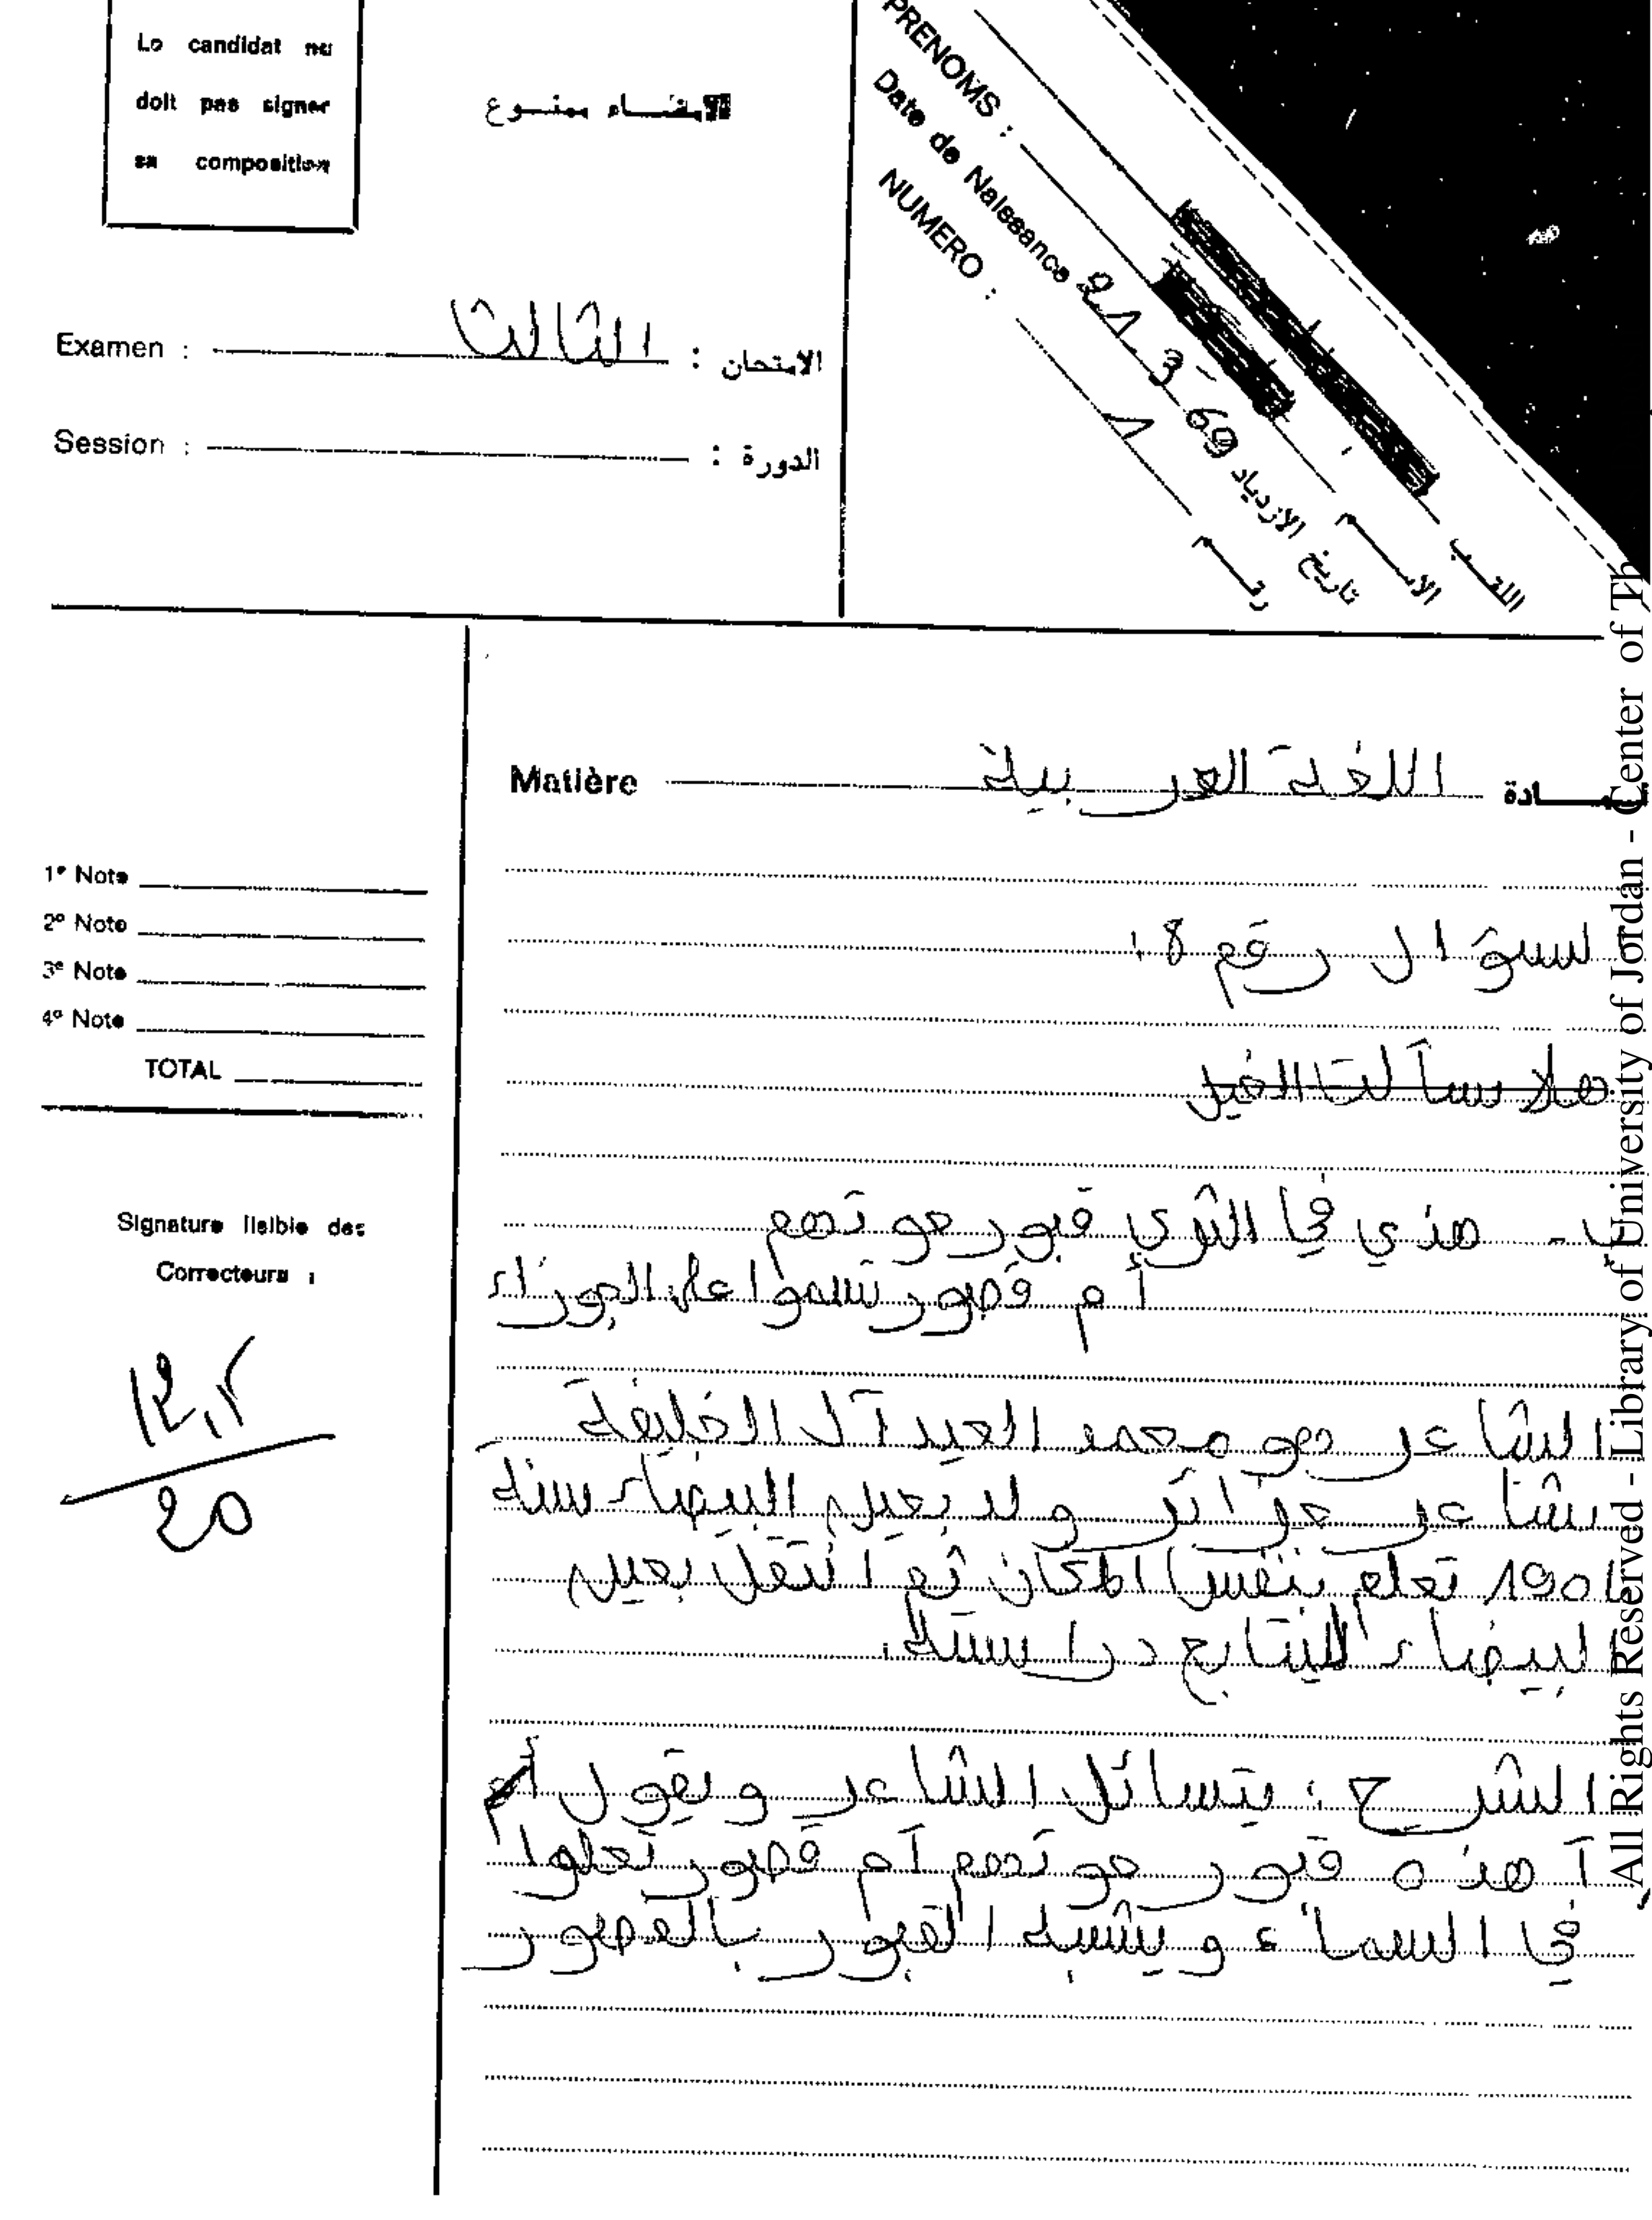 Le candidat ne
doit pas signer
sa composition
الامضاء ممنوع
PRENOMS :
Date de Naissance 21 3 69 تاريخ الازدياد
NUMERO : 1 رقم
اللقب
Examen : الثالث الامتحان :
Session : الدورة :
Matière اللغة العربية ـادة
1e Note
2e Note
3e Note
4e Note
TOTAL
Signature lisible des
Correcteurs :
12,2
20
لسؤال رقم 8:
هلا سآلت الخيل
ب - هذي في الثرى قبور حوتهم
أم قصور تسموا على الجوزاء
الشاعر هو محمد العيد آل الخليفة
شاعر جزائر ولد بعين البيضاء سنة
1901 تعلم بنفس المكان ثم انتقل بعين
البيضاء ليتابع دراسته.
الشرح : يتسائل الشاعر ويقول أم
آ هذه قبور حوتهم آم قصور تعلوا
في السماء ويشبه القبور بالقصور
All Rights Reserved - Library of University of Jordan - Center of Th